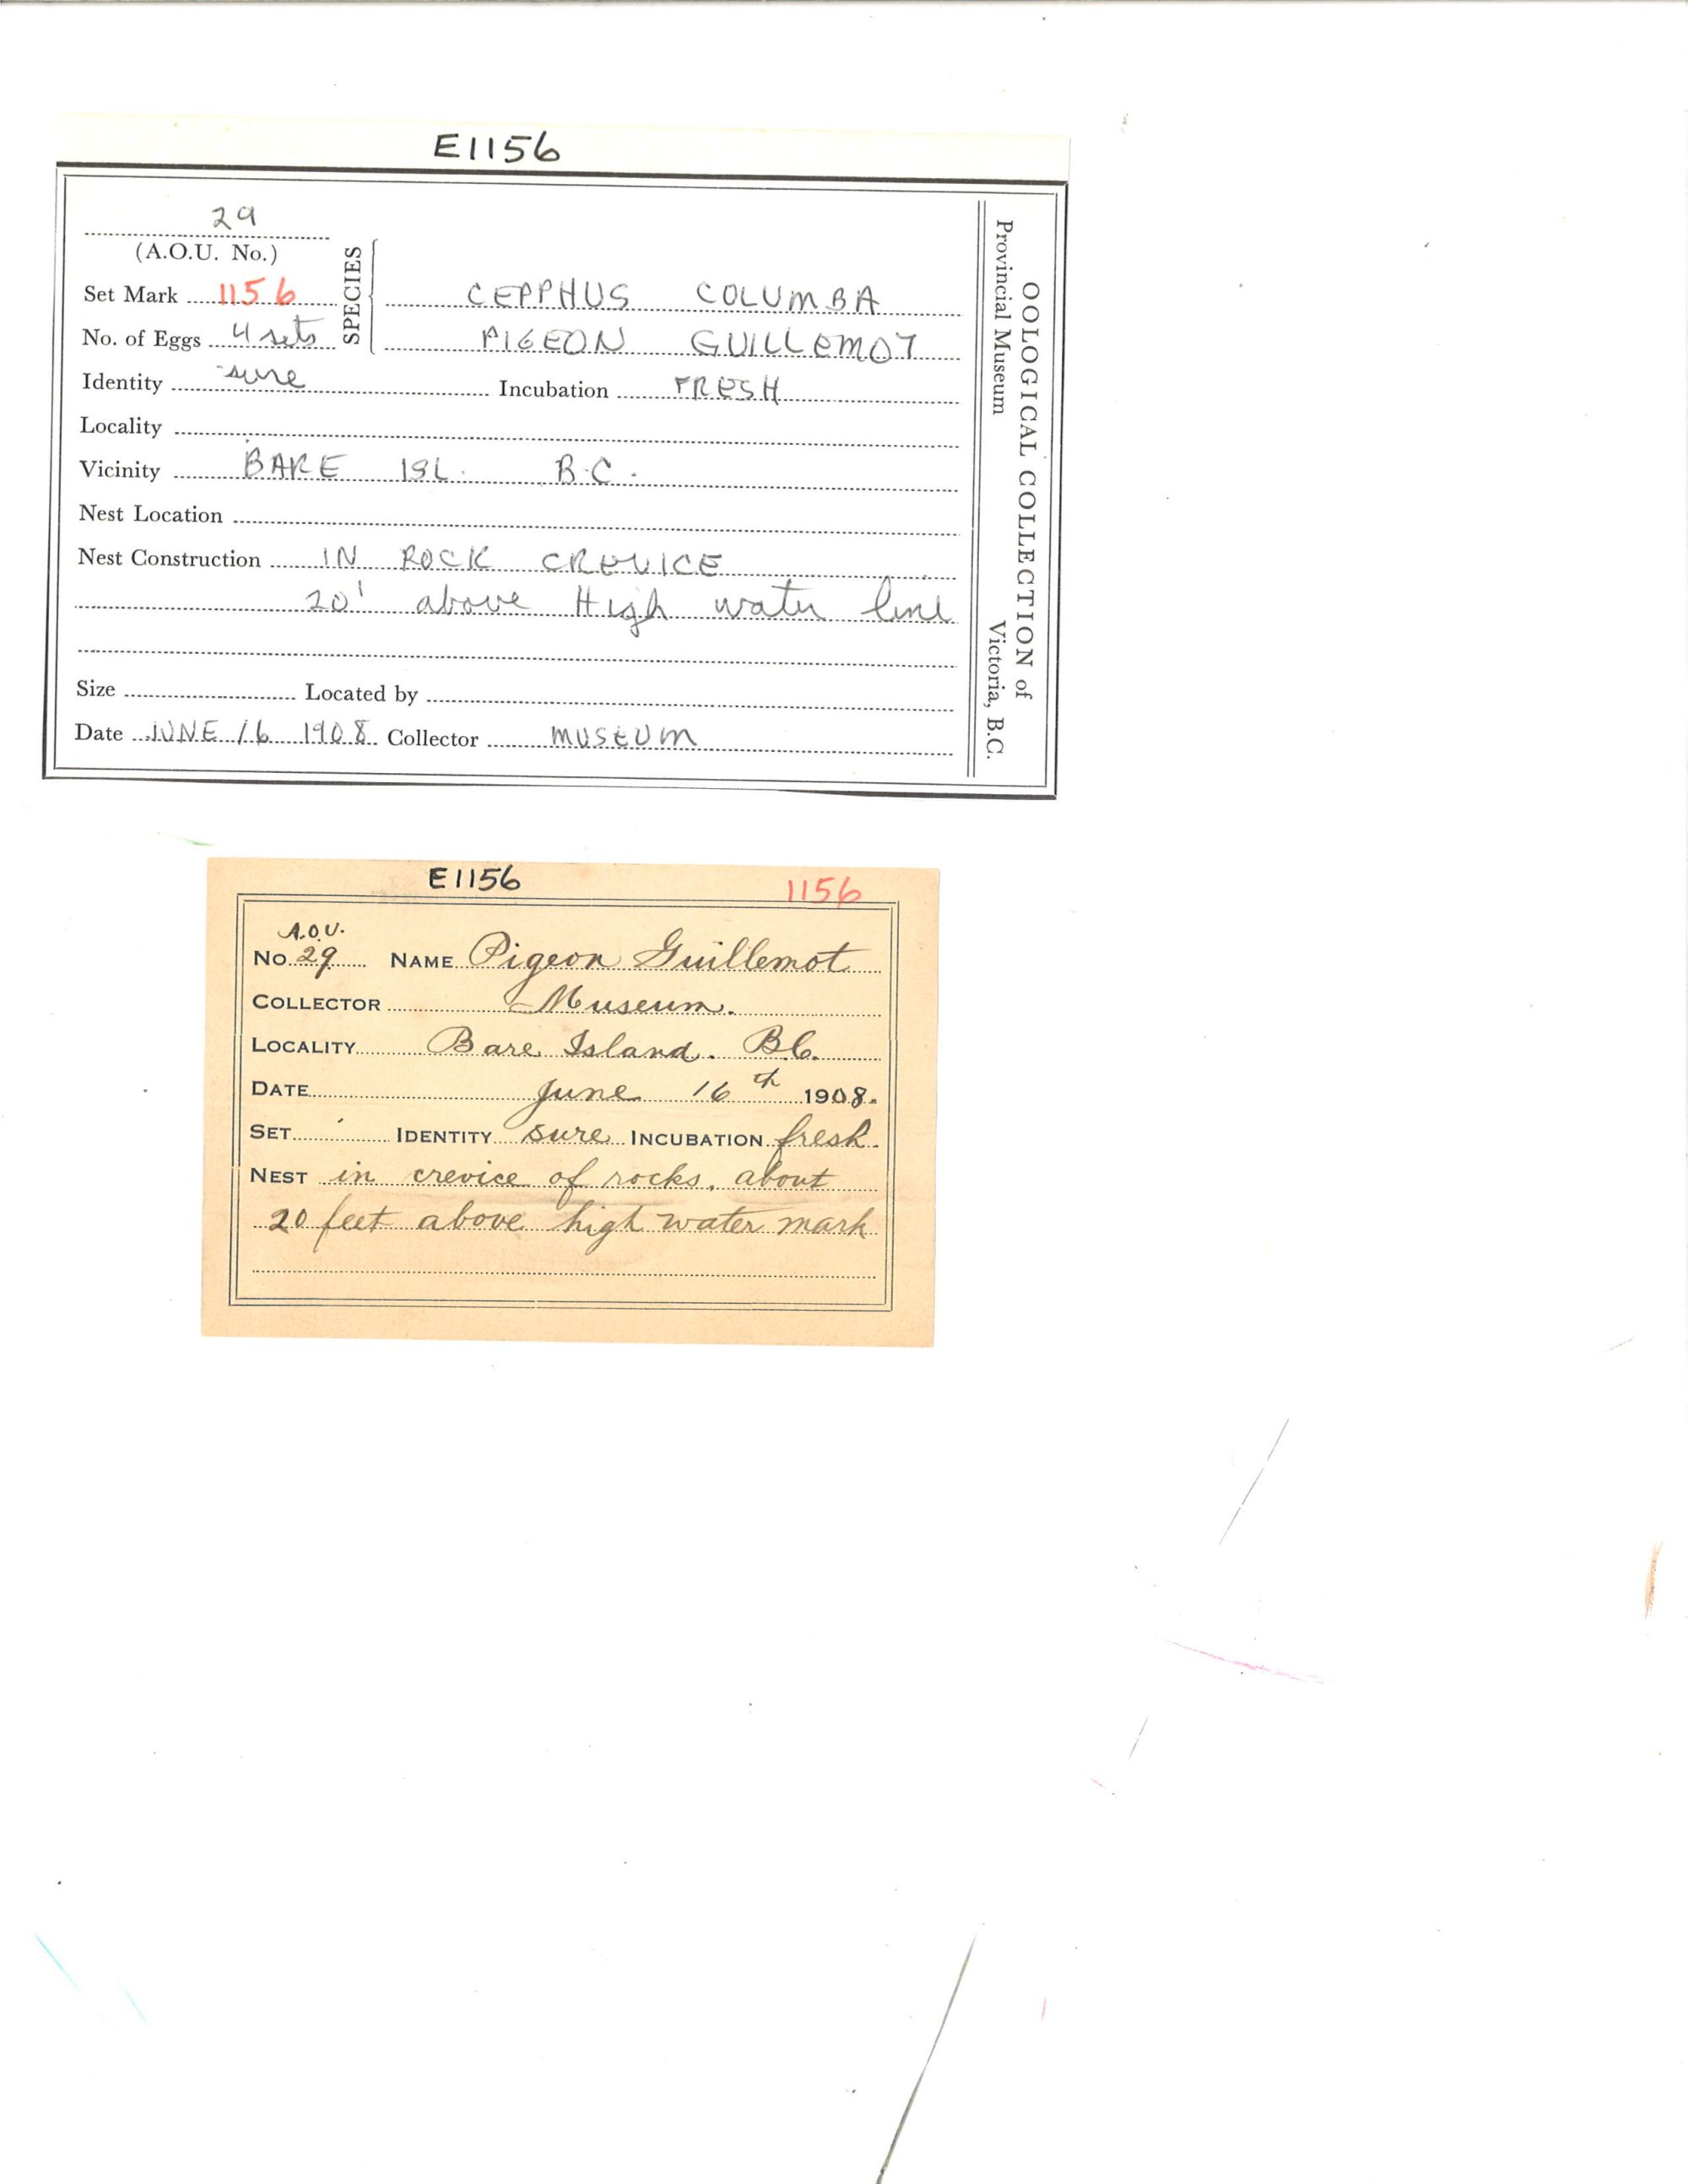 E1156
29
(A.O.U. No.)
SPECIES
Set Mark 1156
CEPPHUS COLUMBA
No. of Eggs 4 sets
PIGEON GUILLEMOT
Identity sure Incubation FRESH
Locality
Vicinity BARE ISL. B.C.
Nest Location
Nest Construction IN ROCK CREVICE
20' above High water line
Size Located by
Date JUNE 16 1908 Collector MUSEUM
OOLOGICAL COLLECTION of
Provincial Museum Victoria, B.C.
E1156 1156
A.O.U.
No. 29 NAME Pigeon Guillemot
COLLECTOR Museum.
LOCALITY Bare Island. B.C.
DATE June 16th 1908.
SET IDENTITY sure INCUBATION fresh.
NEST in crevice of rocks. about
20 feet above high water mark